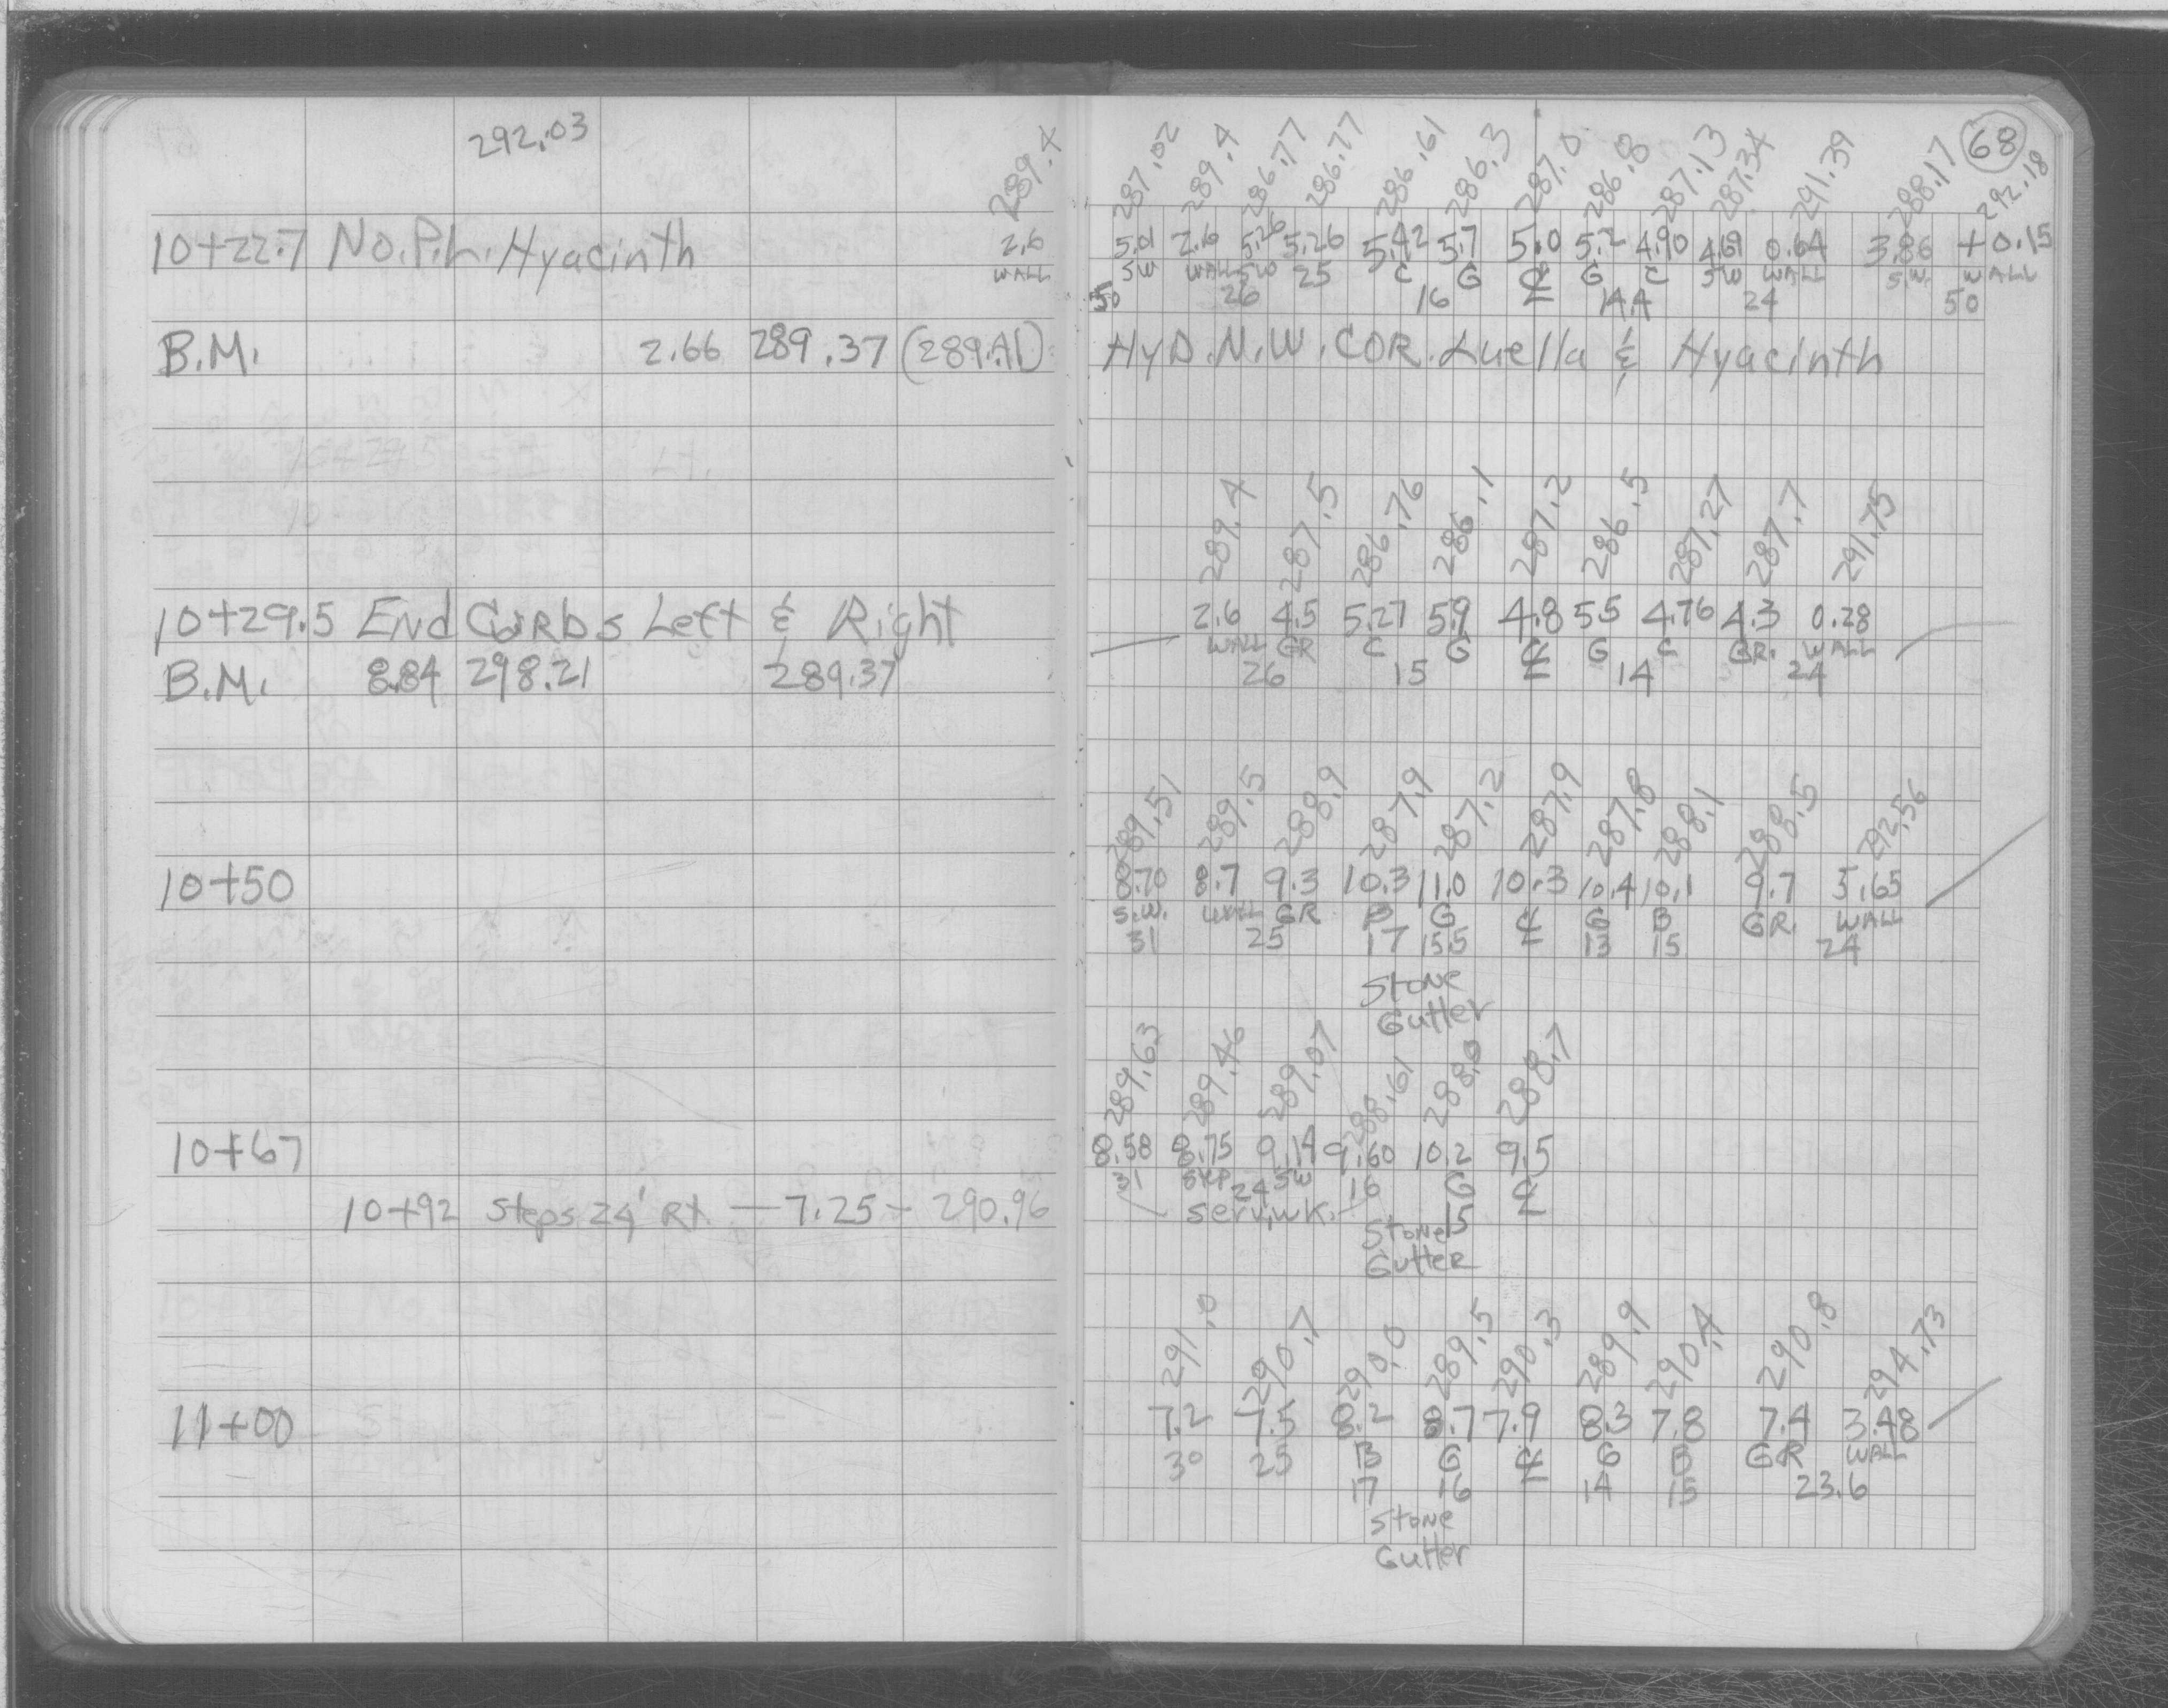 68
292.03
289.4 287.02 289.4 286.77 286.77 286.61 286.3 287.0 286.8 287.13 287.34 291.39 288.17 292.18
10+22.7 No. P.L. Hyacinth 2.6 5.01 2.6 5.26 5.26 5.42 5.7 5.0 5.2 4.90 4.69 0.64 3.86 +0.15
WALL SW WALL SW 25 C G ℄ G C SW WALL S.W. WALL
50 26 16 14.4 24 50
B.M. 2.66 289.37 (289.41) HYD. N.W. COR. Luella & Hyacinth
289.4 287.5 286.76 286.1 287.2 286.5 287.27 287.7 291.75
10+29.5 End Curbs Left & Right 2.6 4.5 5.27 5.9 4.8 5.5 4.76 4.3 0.28
WALL GR C G ℄ G C GR. WALL
B.M. 8.84 298.21 289.37 26 15 14 24
289.51 289.5 288.9 287.9 287.2 287.9 287.8 288.1 288.5 292.56
10+50 8.70 8.7 9.3 10.3 11.0 10.3 10.4 10.1 9.7 5.65
S.W. WALL GR B G ℄ G B GR. WALL
31 25 17 15.5 13 15 24
Stone
Gutter
289.63 289.46 289.07 288.61 288.0 288.7
10+67 8.58 8.75 9.14 9.60 10.2 9.5
31 Step 24 SW 16 G ℄
10+92 Steps 24' Rt. — 7.25 – 290.96 Serv. wk. 15
Stone
Gutter
291.0 290.7 290.0 289.5 290.3 289.9 290.4 290.8 294.73
11+00 7.2 7.5 8.2 8.7 7.9 8.3 7.8 7.4 3.48
30 25 B G ℄ G B GR WALL
17 16 14 15 23.6
Stone
Gutter